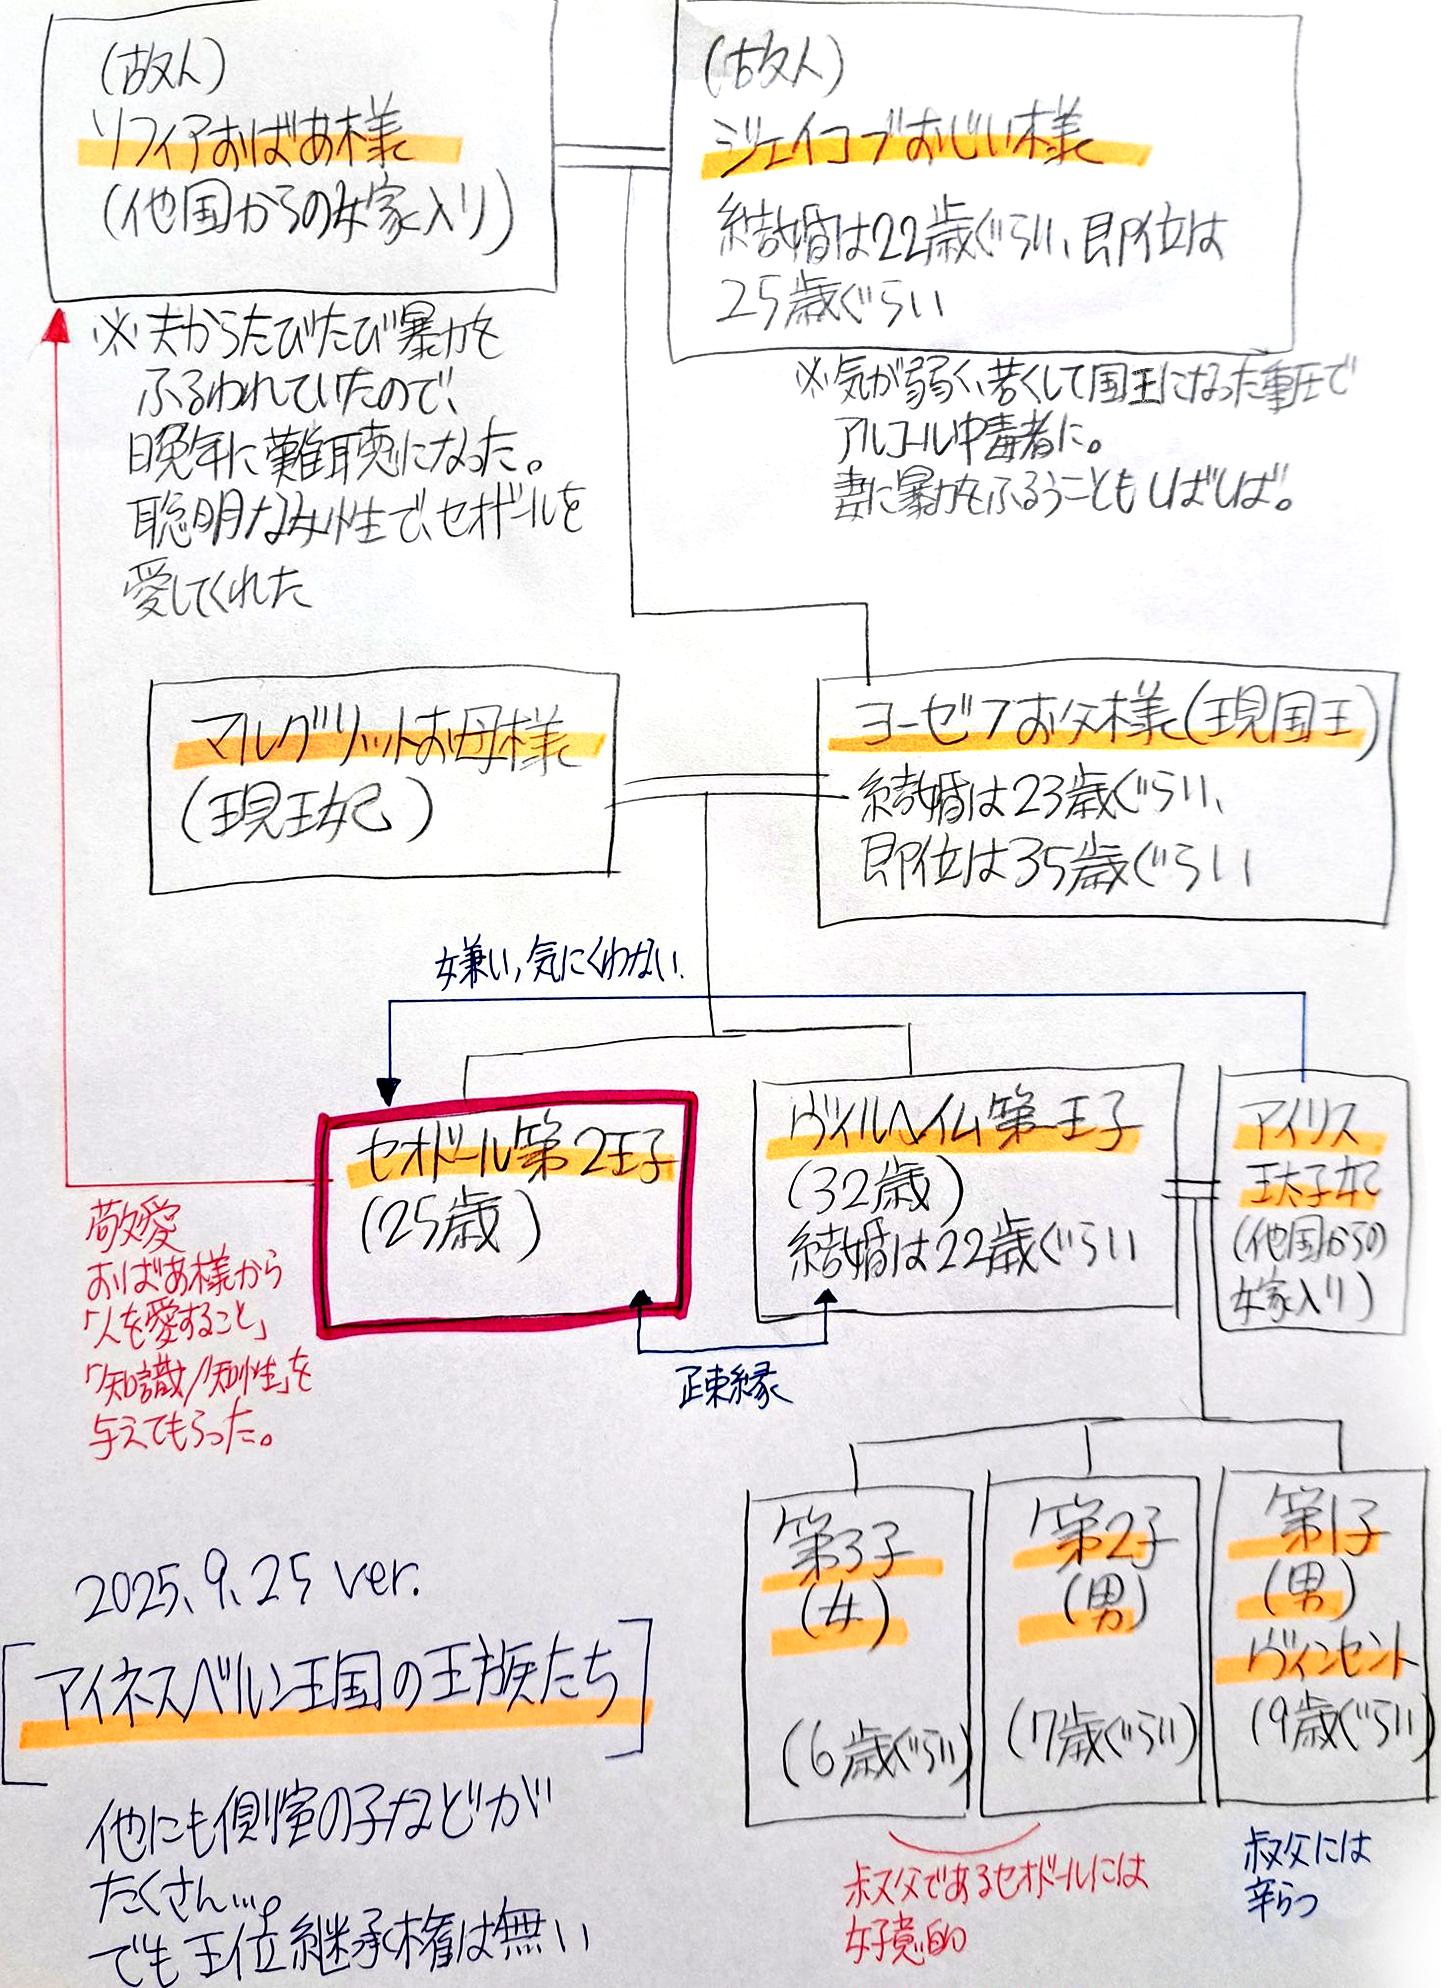 (故人)
ソフィアおばあ様
(他国からの嫁入り)
(故人)
ジェイコブおじい様
結婚は22歳ぐらい、即位は
25歳ぐらい
※夫からたびたび暴力を
ふるわれていたので、
晩年に難聴になった。
聡明な女性で、セオドールを
愛してくれた
※気が弱く、若くして国王になった重圧で
アルコール中毒者に。
妻に暴力をふるうこともしばしば。
マルグリットお母様
(現王妃)
ヨーゼフお父様(現国王)
結婚は23歳ぐらい、
即位は35歳ぐらい
嫌い,気にくわない.
セオドール第2王子
(25歳)
ヴィルヘイム第一王子
(32歳)
結婚は22歳ぐらい
アイリス
王太子妃
(他国からの
嫁入り)
敬愛
おばあ様から
「人を愛すること」
「知識/知性」を
与えてもらった。
疎縁
第3子
(女)
(6歳ぐらい)
第2子
(男)
(7歳ぐらい)
第1子
(男)
ヴィンセント
(9歳ぐらい)
叔父であるセオドールには
好意的
叔父には
辛らつ
2025.9.25 ver.
[アイネスベルン王国の王族たち]
他にも側室の子などが
たくさん…。
でも王位継承権は無い